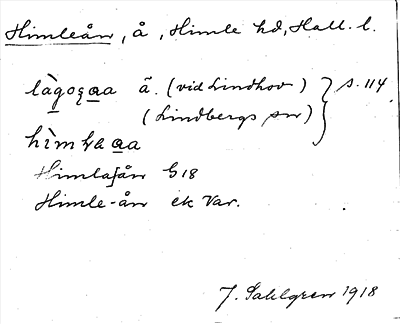 Himleån, å, Himle hd, Hall. l.
làgoʒaa ã. (vid Lindhov) } s. 114
(Lindbergs sn)
Himlaån G18
Himle-ån ek Var.
J. Sahlgren 1918